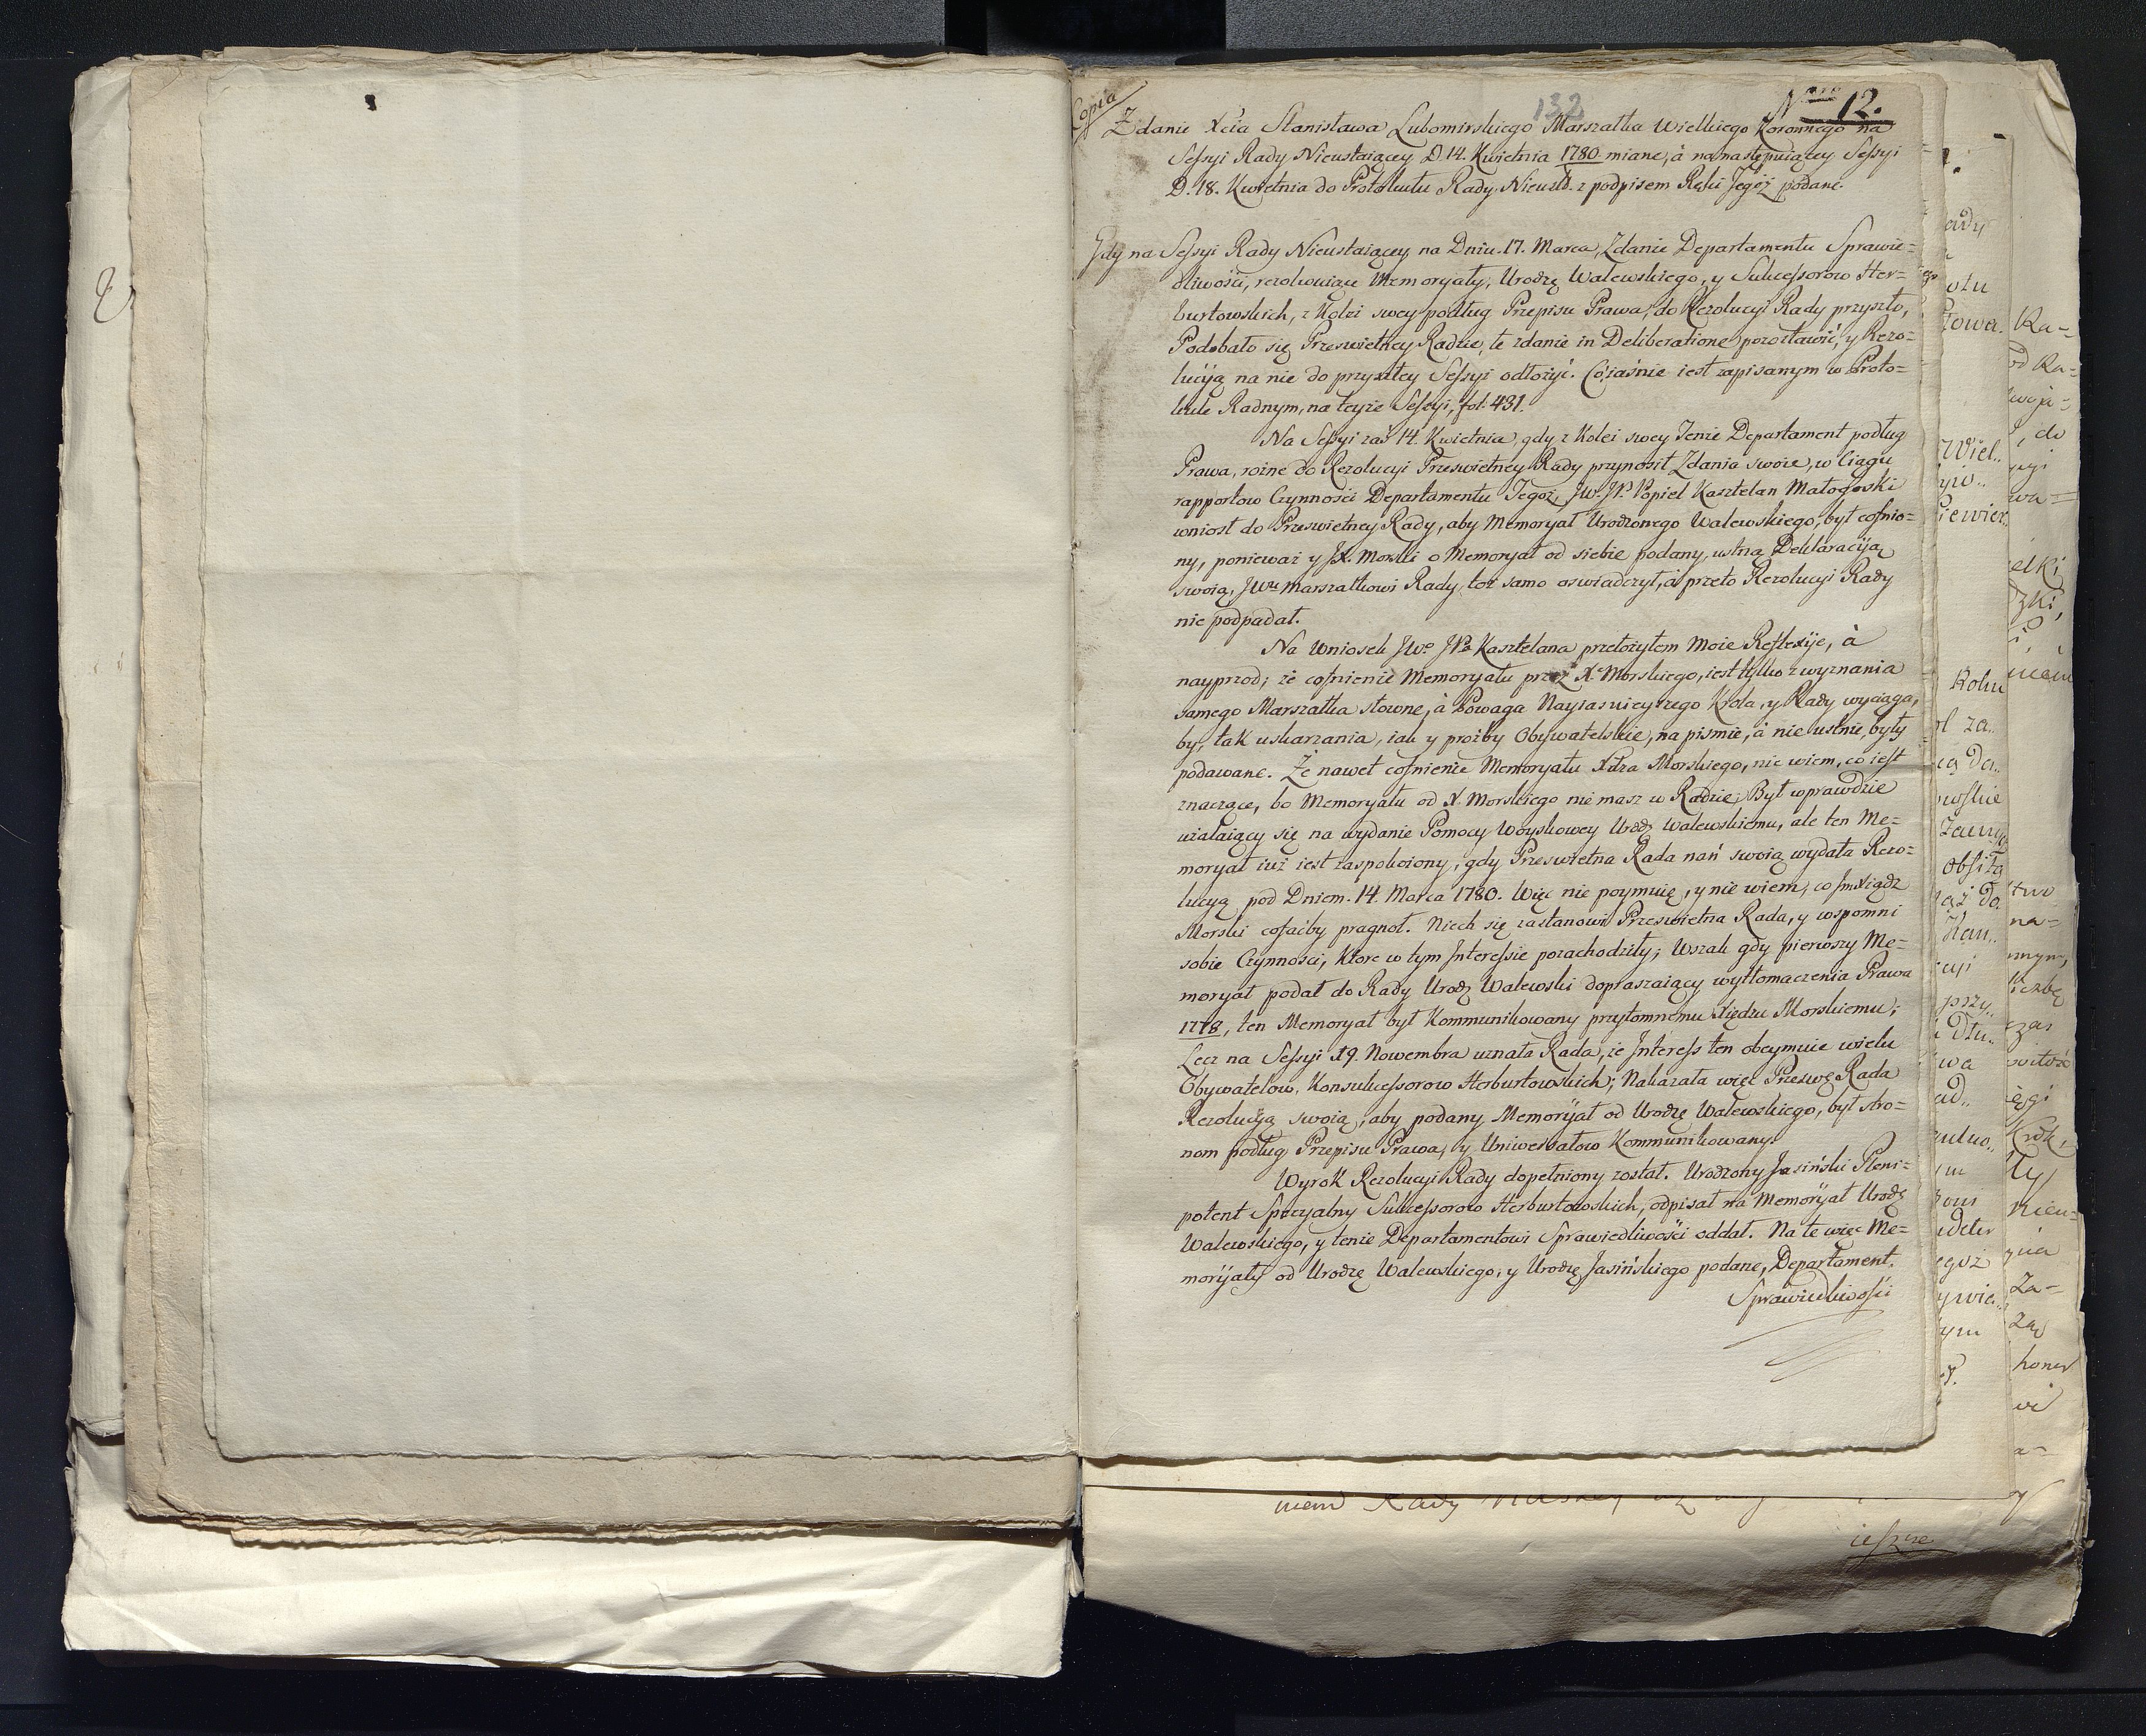 Copia
132
Nro 12.
Zdanie Xcia Stanisława Lubomirskiego Marszałka Wielkiego Koronnego na
Sessyi Rady Nieustaiącey D. 14. Kwietnia 1780 miane, à na następuiącey Sessyi
D. 18. Kwietnia do Protokułu Rady Nieust. z podpisem Ręki Jegoż podane.
Gdy na Sessyi Rady Nieustaiącey na Dniu 17. Marca, Zdanie Departamentu Sprawie=
dliwości, rezolwuiące Memoryały, Urodzę Walewskiego, y Sukcessorow Her=
burtowskich, z Kolei swey podług Przepisu Prawa, do Rezolucyi Rady przyszło,
Podobało się Przeswietney Radzie, te zdanie in Deliberatione pozostawić, y Rezo=
lucyą na nie do przyszłey Sessyi odłożyć. Co iaśnie iest zapisanym w Proto=
kule Radnym, na teyże Sessyi, fol: 431.
Na Sessyi zaś 14. Kwietnia, gdy z Kolei swey Tenże Departament podług
Prawa, rożne do Rezolucyi Przeswietney Rady przynosił Zdania swoie, w Ciągu
rapportow Czynności Departamentu Tegoż, JW. JP. Popiel Kasztelan Małogoski
wniosł do Przeswietney Rady, aby Memoryał Urodzonego Walewskiego, był cofnio=
ny, ponieważ y JX. Morski o Memoryał od siebie podany, ustną Deklaracyią
swoią, JWu Marszałkowi Rady, toż samo oswiadczył, à przeto Rezolucyi Rady
nie podpadał.
Na Wniosek JWo JPa Kasztelana przełożyłem Moie Reflexije, à
nayprzod; że cofnienie Memoryału przez X. Morskiego, iest tylko z wyznania
samego Marszałka słowne, à Powaga Nayiasnieyszego Krola, y Rady wyciąga,
by, tak uskarzania, iak y prożby Obywatelskie, na pismie, à nie ustnie, były
podawane. Że nawet cofnienie Memoryału Xdza Morskiego, nie wiem, co iest
znaczące, bo Memoryału od X. Morskiego nie masz w Radzie; Był wprawdzie
użalaiący się na wydanie Pomocy Woyskowey Urodz Walewskiemu, ale ten Me=
moryał iuż iest zaspokoiony, gdy Przeswietna Rada nań swoią wydała Rezo=
lucyą pod Dniem. 14. Marca 1780. Więc nie poymuię, y nie wiem, co JmXiądz
Morski cofaćby pragnoł. Niech się zastanowi Przeswietna Rada, y wspomni
sobie Czynności, Ktore w tym Interessie pozachodziły; Wszak gdy pierwszy Me=
moryał podał do Rady Urodz Walewski dopraszaiący wytłomaczenia Prawa
1778, ten Memoryał był Kommunikowany przytomnemu Xiędzu Morskiemu;
Lecz na Sessyi 19. Nowembra uznała Rada, że Interess ten obeymuie wielu
Obywatelow, Konsukcessorow Herburtowskich; Nakazała więc Przeswę Rada
Rezolucyą swoią, aby podany Memoryał od Urodzę Walewskiego, był stro=
nom podług Przepisu Prawa, y Uniwersałow Kommunikowany.
Wyrok Rezolucyi Rady dopełniony został. Urodzony Jasiński Pleni=
potent Specyalny Sukcessorow Herburtowskich, odpisał na Memoryał Urodzę
Walewskiego, y tenże Departamentowi Sprawiedliwości oddał. Na te więc Me=
moryały od Urodzę Walewskiego, y Urodzę Jasińskiego podane, Departament
Sprawiedliwości
ieszcze